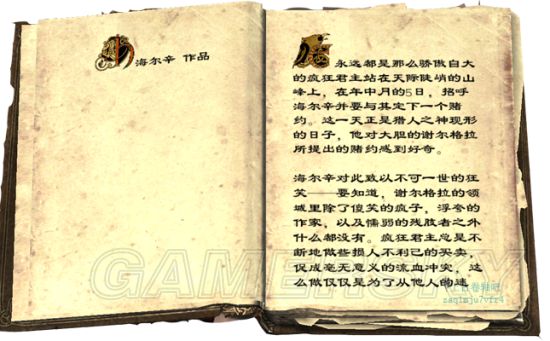 海尔辛 作品
永远都是那么骄傲自大
的疯狂君主站在天际陡峭的山
峰上，在年中月的5日，招呼
海尔辛并要与其定下一个赌
约。这一天正是猎人之神现形
的日子，他对大胆的谢尔格拉
所提出的赌约感到好奇。
海尔辛对此致以不可一世的狂
笑——要知道，谢尔格拉的领
域里除了傻笑的疯子，浮夸的
作家，以及懦弱的残肢者之外
什么都没有。疯狂君主总是不
断地做些损人不利己的买卖，
促成毫无意义的流血冲突，这
么做仅仅是为了从他人的迷
GAMERSKY
zaq1mju7vfr4